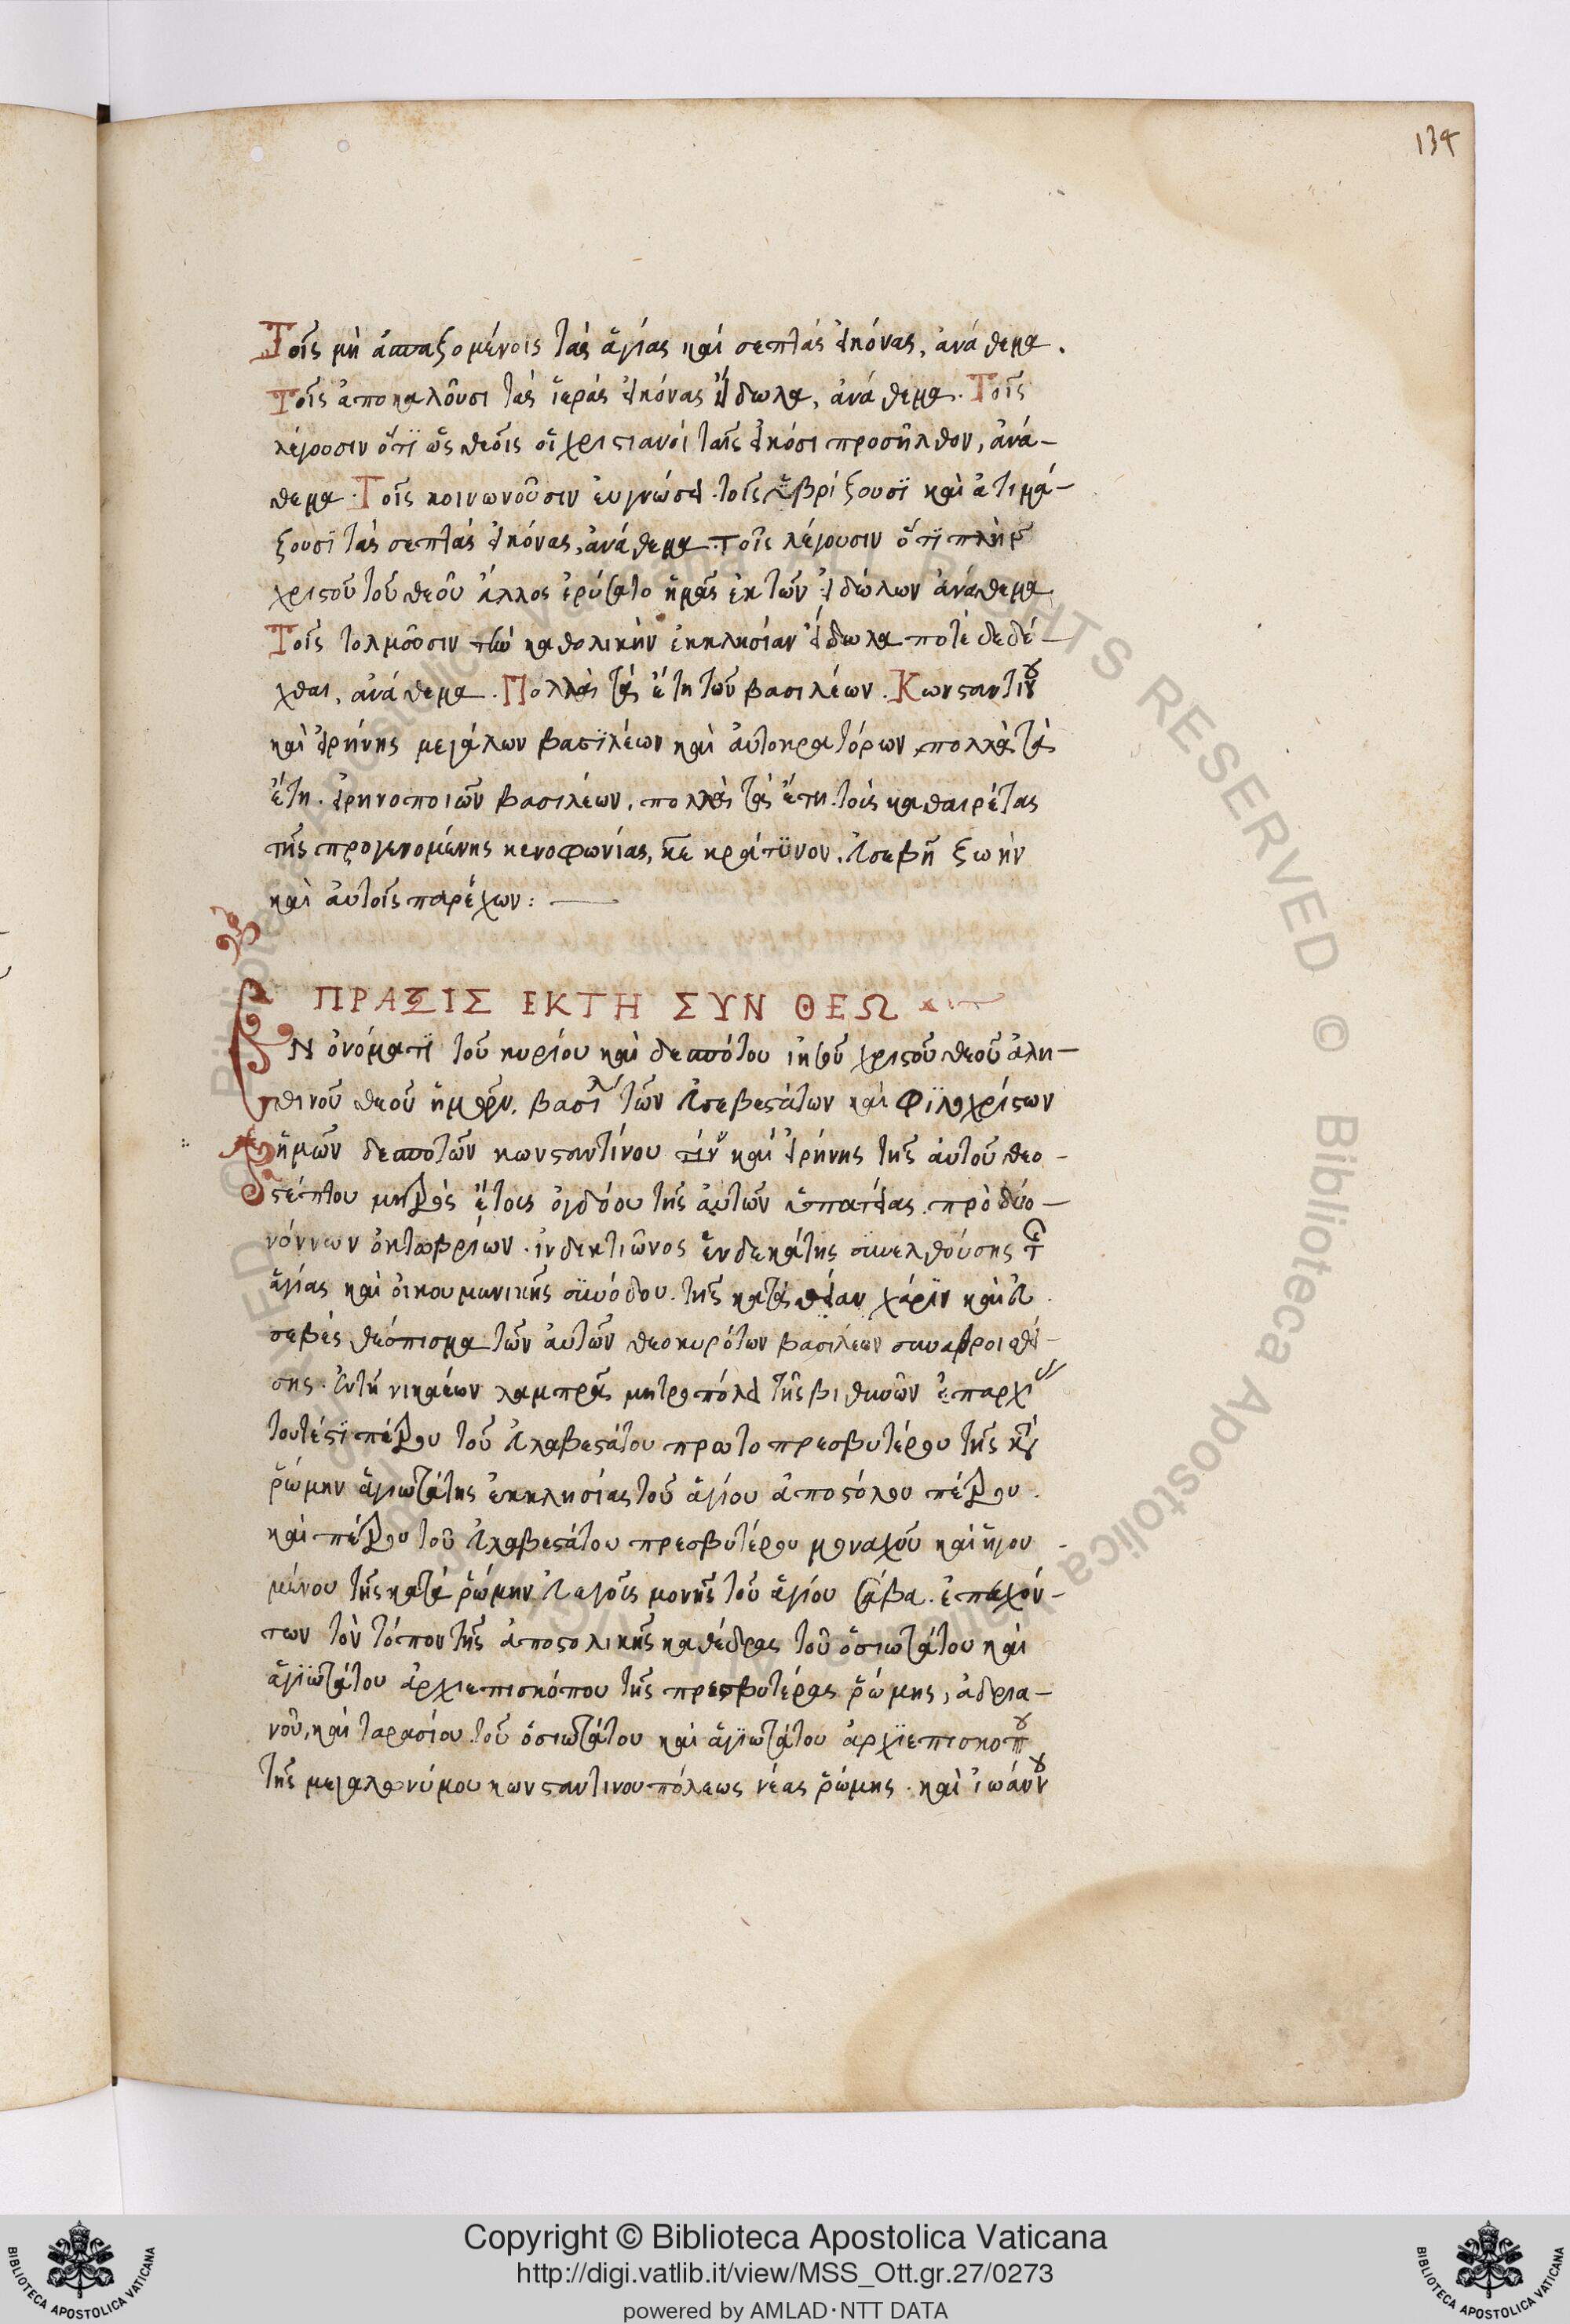 134
Τοῖς μὴ ἀσπαζομένοις τὰς ἁγίας καὶ σεπτὰς εἰκόνας, ἀνάθεμα.
Τοῖς ἀποκαλοῦσι τὰς ἱερὰς εἰκόνας εἴδωλα, ἀνάθεμα. Τοῖς
λέγουσιν ὅτι ὡς θεοῖς οἱ χριστιανοὶ ταῖς εἰκόσι προσῆλθον, ἀνά-
θεμα. Τοῖς κοινωνοῦσιν ἐν γνώσει τοῖς ὑβρίζουσι καὶ ἀτιμά-
ζουσι τὰς σεπτὰς εἰκόνας, ἀνάθεμα. Τοῖς λέγουσιν ὅτι πλὴν
χριστοῦ τοῦ θεοῦ ἄλλος ἐρύσατο ἡμᾶς ἐκ τῶν εἰδώλων ἀνάθεμα
Τοῖς τολμοῦσιν τὴν καθολικὴν ἐκκλησίαν εἴδωλα ποτὲ δεδέ-
χθαι, ἀνάθεμα. Πολλὰ τὰ ἔτη τῶν βασιλέων. Κωνσταντίνου
καὶ εἰρήνης μεγάλων βασιλέων καὶ αὐτοκρατόρων πολλὰ τὰ
ἔτη. εἰρηνοποιῶν βασιλέων, πολλὰ τὰ ἔτη. τοὺς καθαιρέτας
τῆς προγενομένης κενοφωνίας, κύριε κράτυνον. εὐσεβῆ ζωὴν
καὶ αὐτοῖς παρέχων:
ΠΡΑΞΙΣ ΕΚΤΗ ΣΥΝ ΘΕΩ
ΕΝ ὀνόματι τοῦ κυρίου καὶ δεσπότου ἰησοῦ χριστοῦ θεοῦ ἀλη-
θινοῦ θεοῦ ἡμῶν, βασι^λ τῶν εὐσεβεστάτων καὶ φιλοχρίστων
ἡμῶν δεσποτῶν κωνσταντίνου καὶ εἰρήνης τῆς αὐτοῦ θεο-
στέπτου μητρὸς ἔτους ὀγδόου τῆς αὐτῶν ὑπατείας. πρὸ δύο-
νόννων ὀκτωβρίων. ἰνδεκτιῶνος ἑνδεκάτης συνελθούσης τῆς
ἁγίας καὶ οἰκουμενικῆς συνόδου. τῆς κατὰ θείαν χάριν καὶ εὐ
σεβὲς θέσπισμα τῶν αὐτῶν θεοκυρότων βασιλέων συναθροισθεί-
σης. ἐν τῇ νικαέων λαμπρᾷ μητροπόλει τῆς βιθυνῶν ἐπαρχί
τουτέστι πέτρου τοῦ εὐλαβεστάτου πρωτοπρεσβυτέρου τῆς κατὰ
ῥώμην ἁγιωτάτης ἐκκλησίας τοῦ ἁγίου ἀποστόλου πέτρου.
καὶ πέτρου τοῦ εὐλαβεστάτου πρεσβυτέρου μοναχοῦ καὶ ἡγου
μένου τῆς κατὰ ῥώμην εὐαγοῦς μονῆς τοῦ ἁγίου σάβα. ἐπεχόν-
των τὸν τόπον τῆς ἀποστολικῆς καθέδρας τοῦ ὁσιωτάτου καὶ
ἁγιωτάτου ἀρχιεπισκόπου τῆς πρεσβυτέρας ῥώμης, ἀδρια-
νοῦ, καὶ ταρασίου τοῦ ὁσιωτάτου καὶ ἁγιωτάτου ἀρχιεπισκόπου
τῆς μεγαλωνύμου κωνσταντινουπόλεως νέας ῥώμης. καὶ ἰωάννου
© Biblioteca Apostolica Vaticana ALL RIGHTS RESERVED
Copyright © Biblioteca Apostolica Vaticana
http://digi.vatlib.it/view/MSS_Ott.gr.27/0273
powered by AMLAD·NTT DATA
BIBLIOTECA APOSTOLICA VATICANA
BIBLIOTECA APOSTOLICA VATICANA